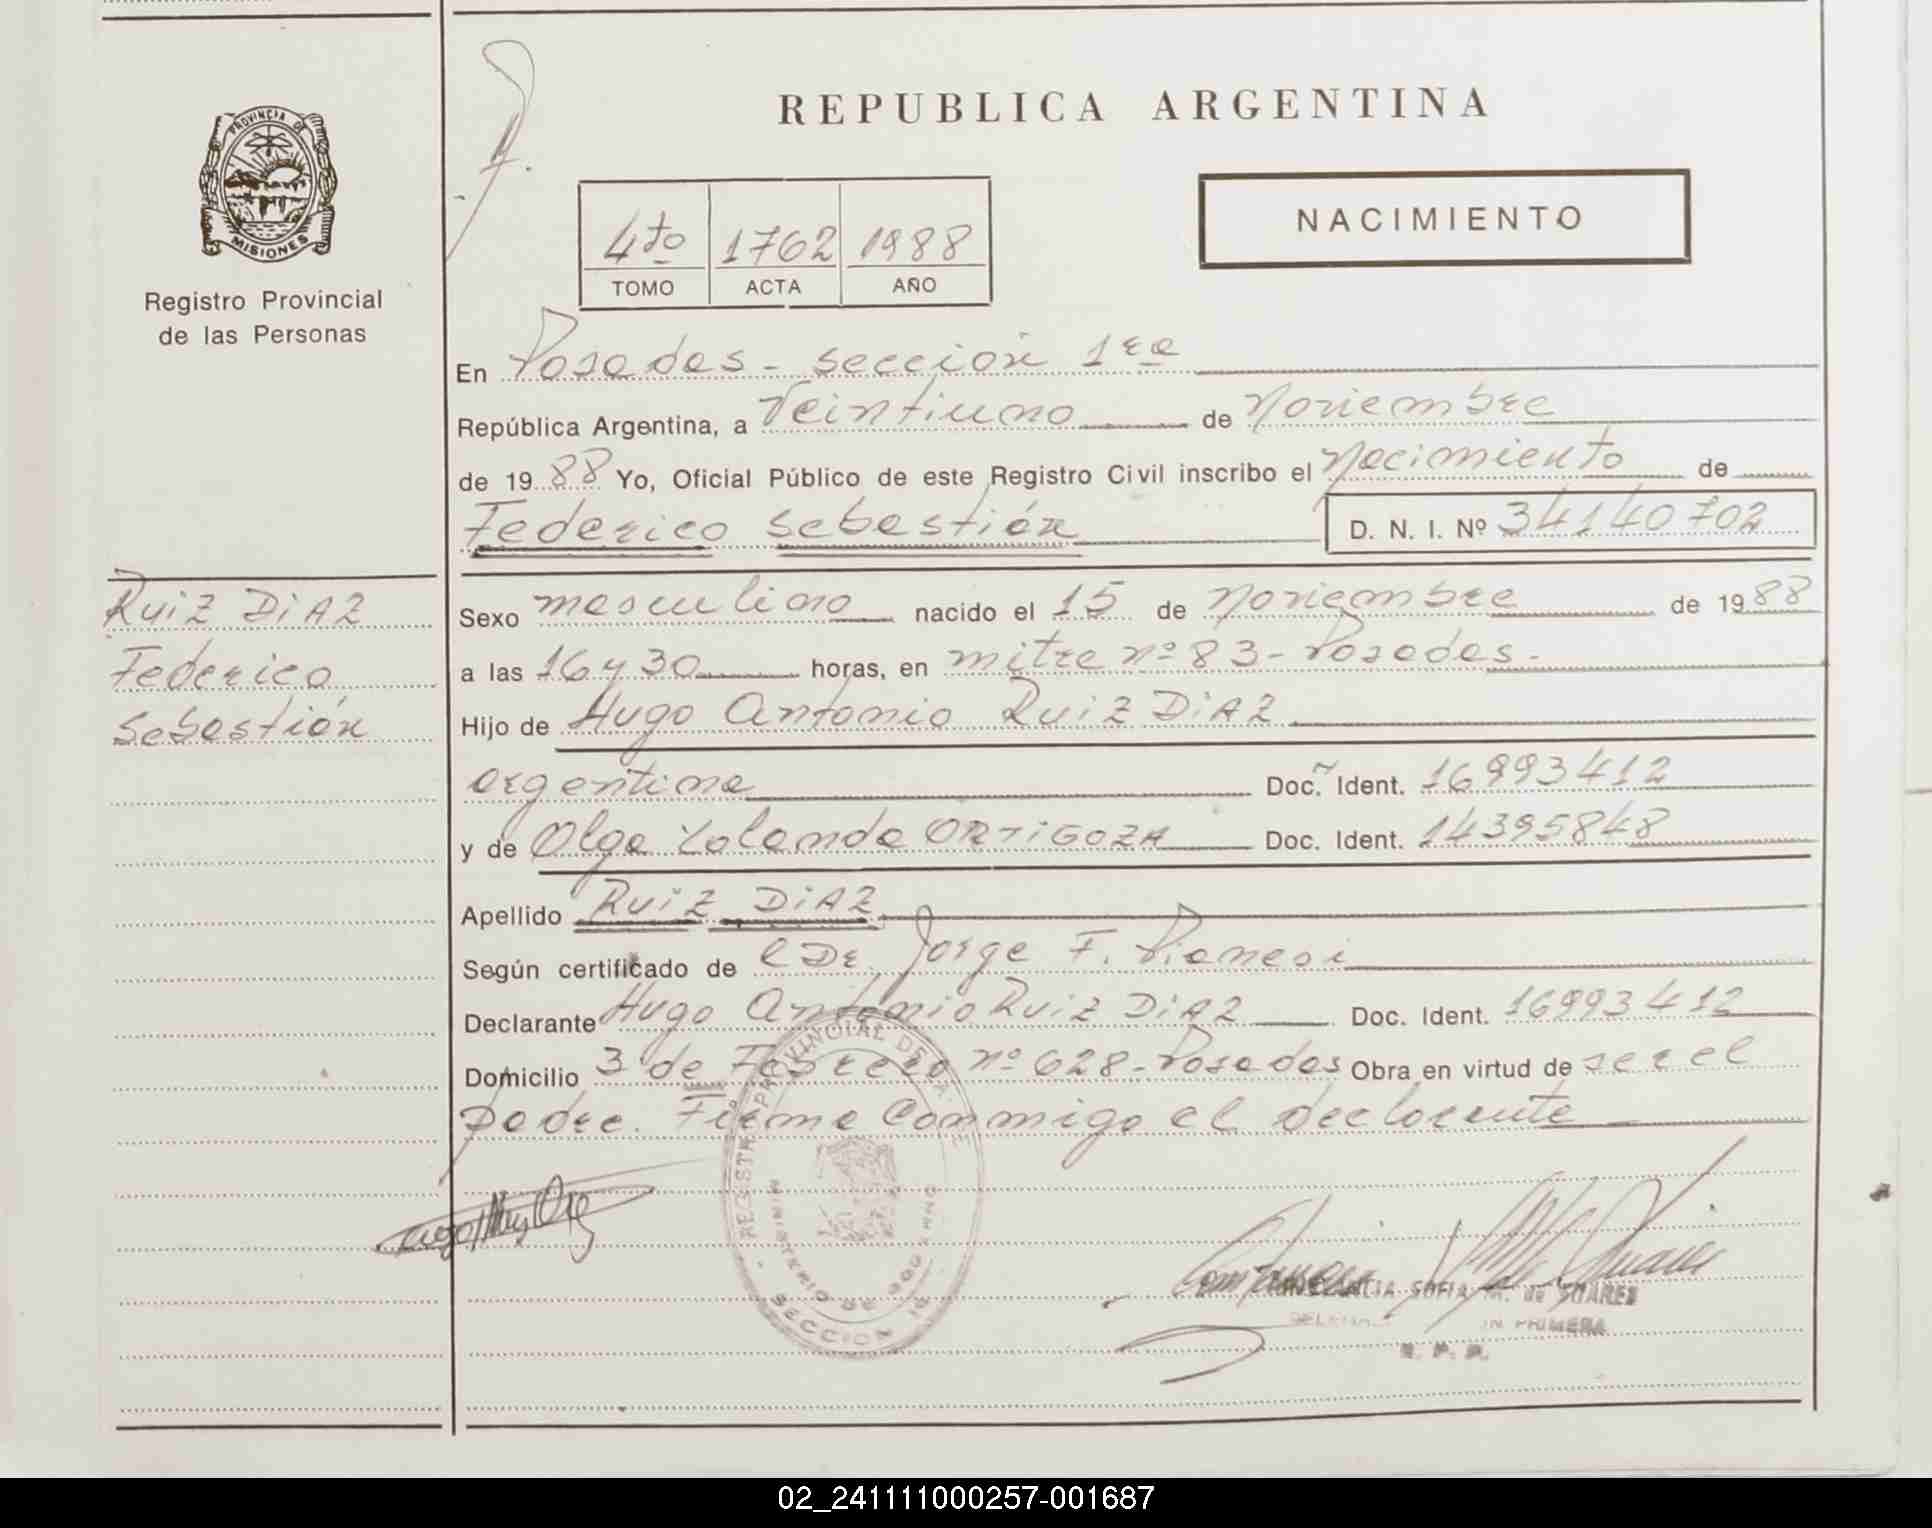 PROVINCIA DE
MISIONES
Registro Provincial
de las Personas
RUIZ DIAZ
Federico
Sebastián
REPUBLICA ARGENTINA
4to 1762 1988
TOMO ACTA AÑO
NACIMIENTO
En Posadas - sección 1ra
República Argentina, a Veintiuno de Noviembre
de 1988 Yo, Oficial Público de este Registro Civil inscribo el Nacimiento de
Federico Sebastián D. N. I. Nº 34140702
Sexo masculino nacido el 15 de Noviembre de 1988
a las 16 y 30 horas, en mitre nº 83 - Posadas -
Hijo de Hugo Antonio RUIZ DIAZ
argentina Doc. Ident. 16993412
y de Olga Yolanda ORTIGOZA Doc. Ident. 14395848
Apellido RUIZ DIAZ
Según certificado de Dr. Jorge F. Pianesi
Declarante Hugo Antonio RUIZ DIAZ Doc. Ident. 16993412
Domicilio 3 de Febrero nº 628 - Posadas Obra en virtud de ser el
padre. Firma Conmigo el declarante
REGISTRO PROVINCIAL DE LAS
MINISTERIO DE GOBIERNO
SECCION 1a
SOFIA M. de SUAREZ
PRIMERA
R. P. P.
02_241111000257-001687